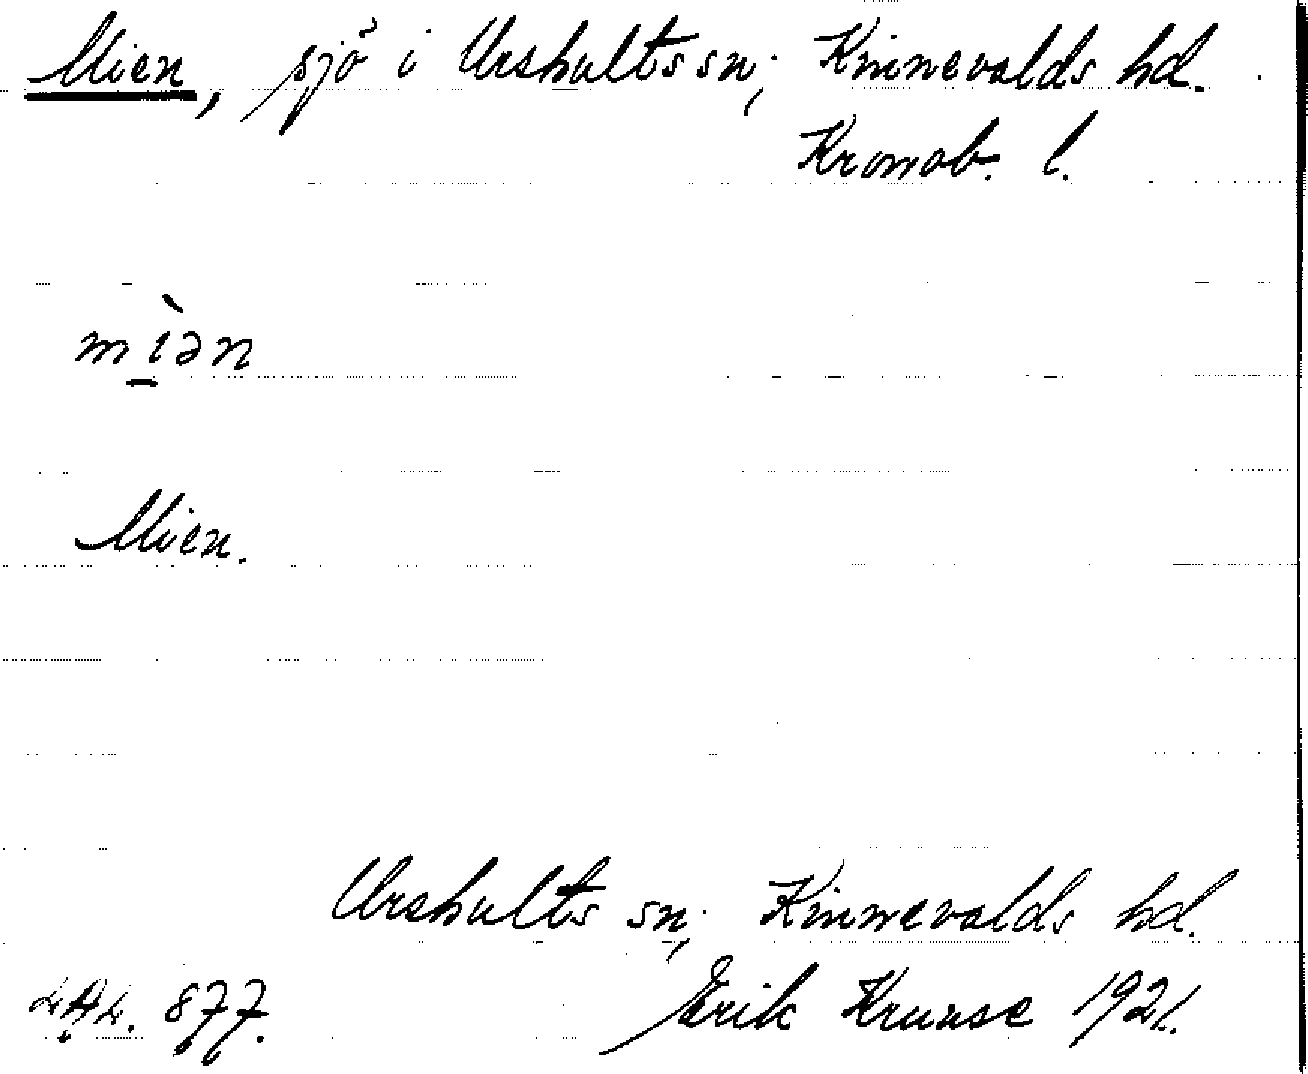 Mien, sjö i Urshults sn, Kinnevalds hd.
Kronob. l.
mìən
Mien.
Urshults sn, Kinnevalds hd.
LAL. 877. Erik Kruuse 1921.